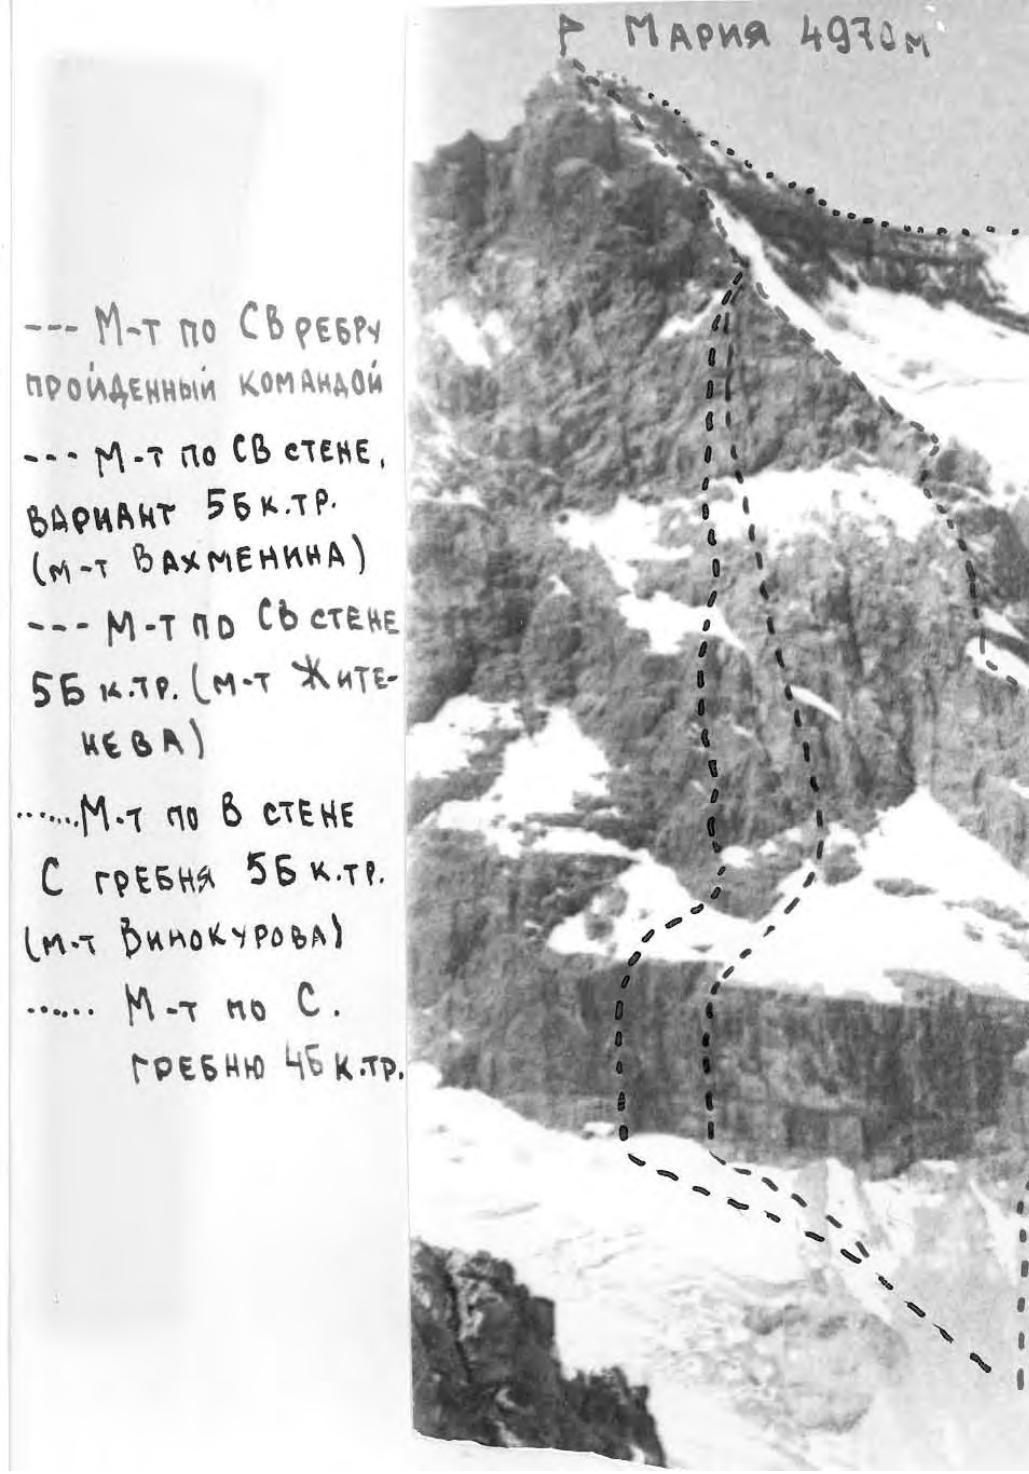 Мария 4970м
--- М-т по СВ ребру
пройденный командой
--- М-т по СВ стене,
вариант 5Б к.тр.
(м-т Вахменина)
--- М-т по СВ стене
5Б к.тр. (м-т Жите-
нева)
...... М-т по В стене
с гребня 5Б к.тр.
(м-т Винокурова)
...... М-т по С.
гребню 4Б к.тр.